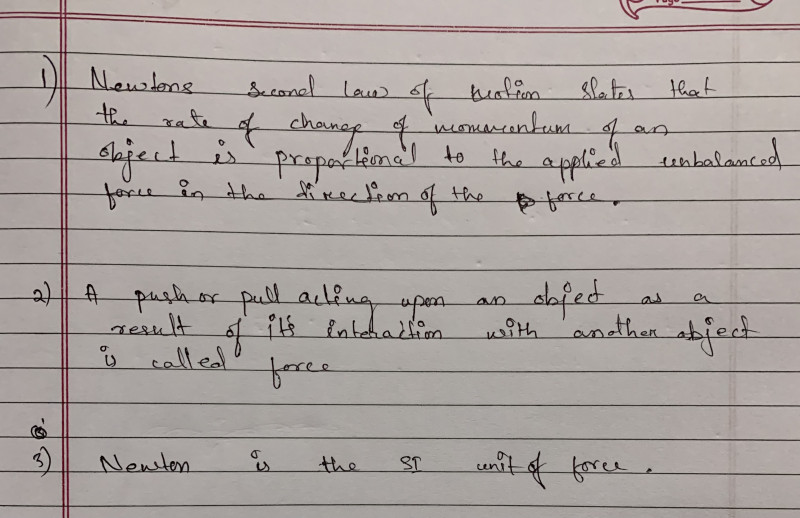 1) Newtons second law of motion states that
the rate of change of momentum of an
object is proportional to the applied unbalanced
force in the direction of the force.
2) A push or pull acting upon an object as a
result of it's interaction with another object
is called force
3) Newton is the SI unit of force.